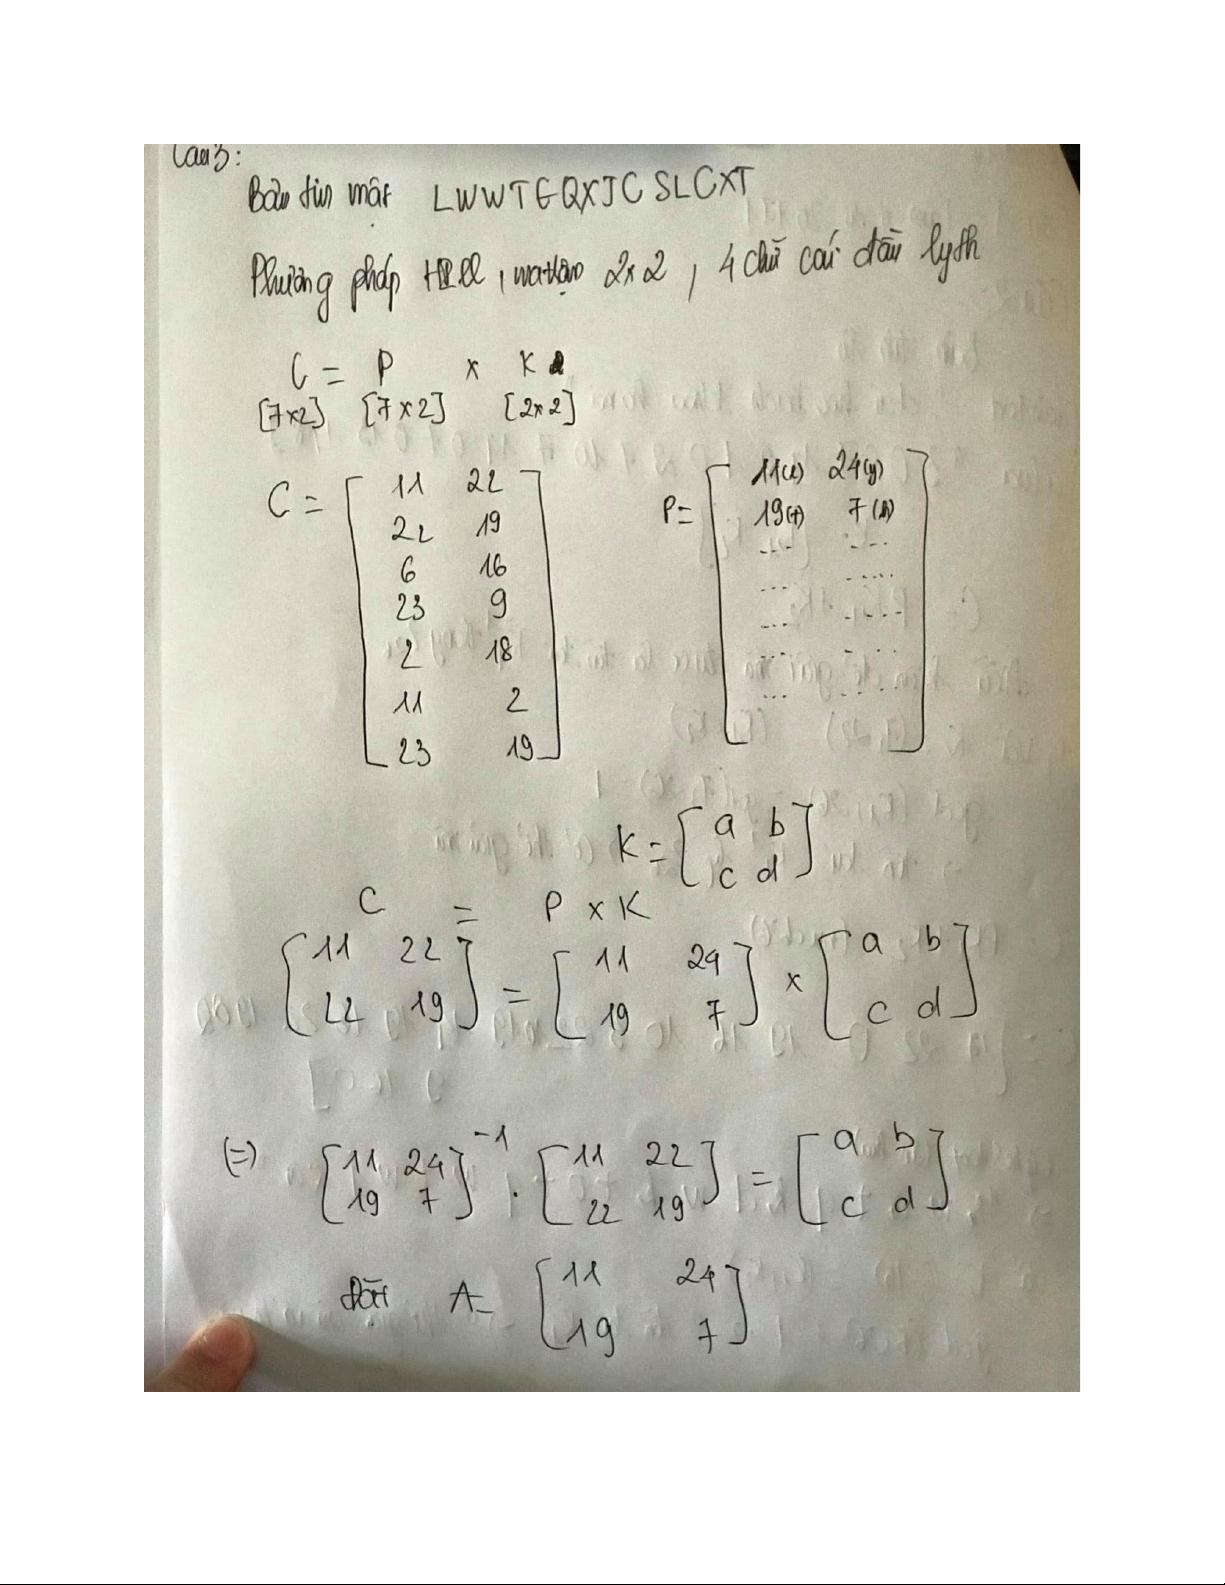 Câu 3:
Bản tin mật LWWTGQXJCSLCXT
Phương pháp Hill, ma trận 2x2, 4 chữ cái đầu lyth
C = P x K
[7x2] [7x2] [2x2]
C = [ 11 22
22 19
6 16
23 9
2 18
11 2
23 19 ]
P = [ 11(l) 24(y)
19(t) 7(h)
... ...
... ...
... ...
... ...
... ... ]
K = [ a b
c d ]
C = P x K
[ 11 22 ] = [ 11 24 ] x [ a b ]
[ 22 19 ] [ 19 7 ] [ c d ]
(=) [ 11 24 ]⁻¹ . [ 11 22 ] = [ a b ]
[ 19 7 ] [ 22 19 ] [ c d ]
Đặt A = [ 11 24
19 7 ]